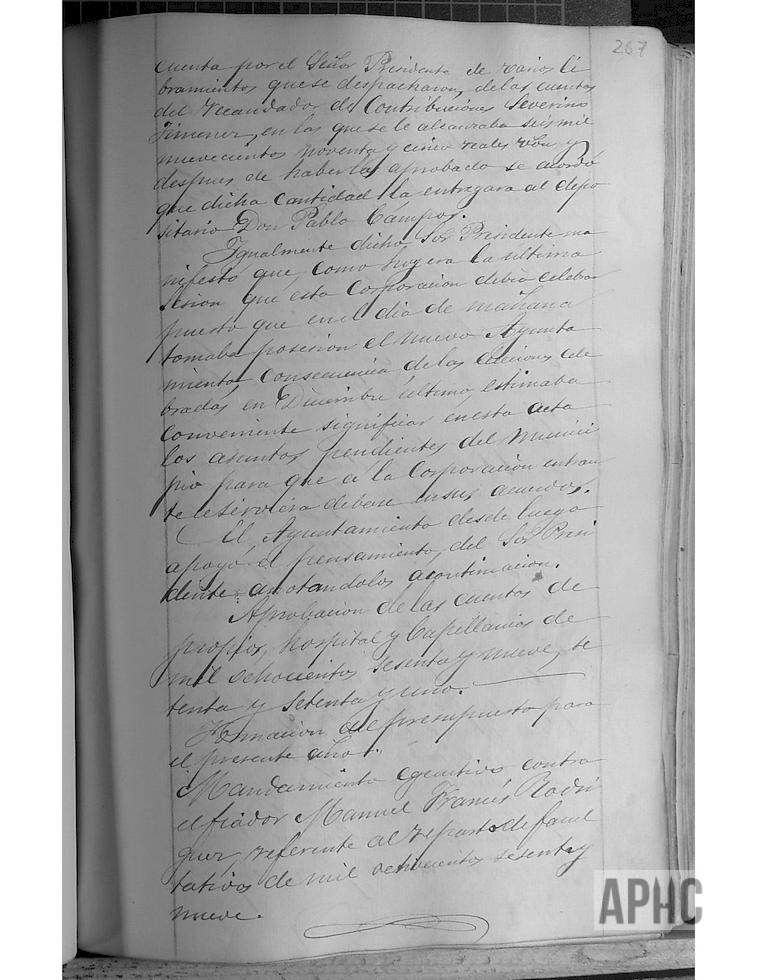 267
cuenta por el Señor Presidente de varios li
bramientos que se despacharon, de las cuentas
del recaudador de Contribuciones Severino
Jimenez, en las que se le alcanzaba seis mil
nuevecientos noventa y cinco reales von, y
despues de haberla aprobado se acordó
que dicha cantidad la entregara al depo
sitario Don Pablo Campos.
Igualmente dicho Sor Presidente ma
nifestó que, como hoy era la ultima
sesion que esta Corporacion debia celebrar
puesto que en el dia de mañana
tomaba posesion el nuevo Ayunta
miento consecuencia de las elecciones cele
bradas en Diciembre último, estimaba
conveniente significar en esta acta
los asuntos pendientes del munici
pio para que á la Corporacion entran
te le sirviera de base en sus acuerdos.
El Ayuntamiento desde luego
apoyó el pensamiento del Sor Presi
dente anotandolos á continuacion.
Aprobacion de las cuentas de
propios, hospital y Capellanias de
mil ochocientos sesenta y nueve, se
tenta y setenta y uno.
Formacion del presupuesto para
el presente año.
Mandamiento egecutivo contra
el fiador Manuel Francés Rodri
guez, referente al reparto de facul
tativos de mil ochocientos sesenta y
nueve.
APHC